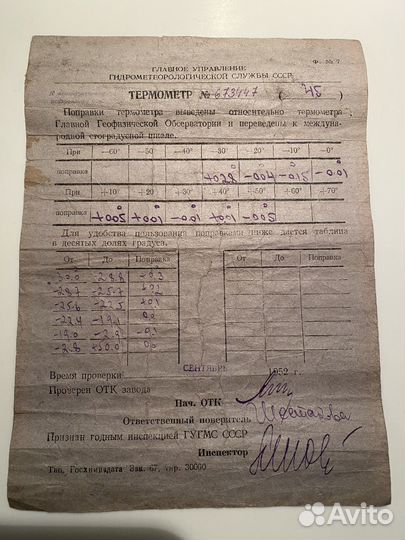 Ф. № 7
ГЛАВНОЕ УПРАВЛЕНИЕ
ГИДРОМЕТЕОРОЛОГИЧЕСКОЙ СЛУЖБЫ СССР
ТЕРМОМЕТР № 673447 ( 45 )
Поправки термометра выведены относительно термометра
Главной Геофизической Обсерватории и переведены к междуна-
родной стоградусной шкале.
При —60° —50 —40° —30° —20° —10° —0°
поправка +028 -004 -015 -001
При +10 +20 +30° +40° +50° +60° +70°
поправка +005 +001 -001 +001 -005
Для удобства пользования поправками ниже дается таблица
в десятых долях градуса.
От До Поправка От До Поправка
-30.0 -28.8 +0.3
-28.7 -25.7 +0.2
-25.6 -22.5 +0.1
-22.4 -19.1 0.0
-19.0 -2.9 -0.1
-2.8 +50.0 0.0
Время проверки СЕНТЯБРЬ 1952 г.
Проверен ОТК завода
Нач. ОТК
Ответственный поверитель
Признан годным инспекцией ГУГМС СССР
Инспектор
Тип. Госхимиздата Зак. 67, тир. 30000
Avito